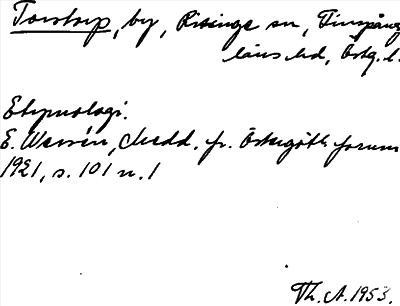 Torstorp, by, Risinge sn, Finspånga
läns hd, Östg. l.
Etymologi.
E. Wessén, Medd. fr. Östergötl. fornm
1921, s. 101 n. 1
Th. A. 1953.